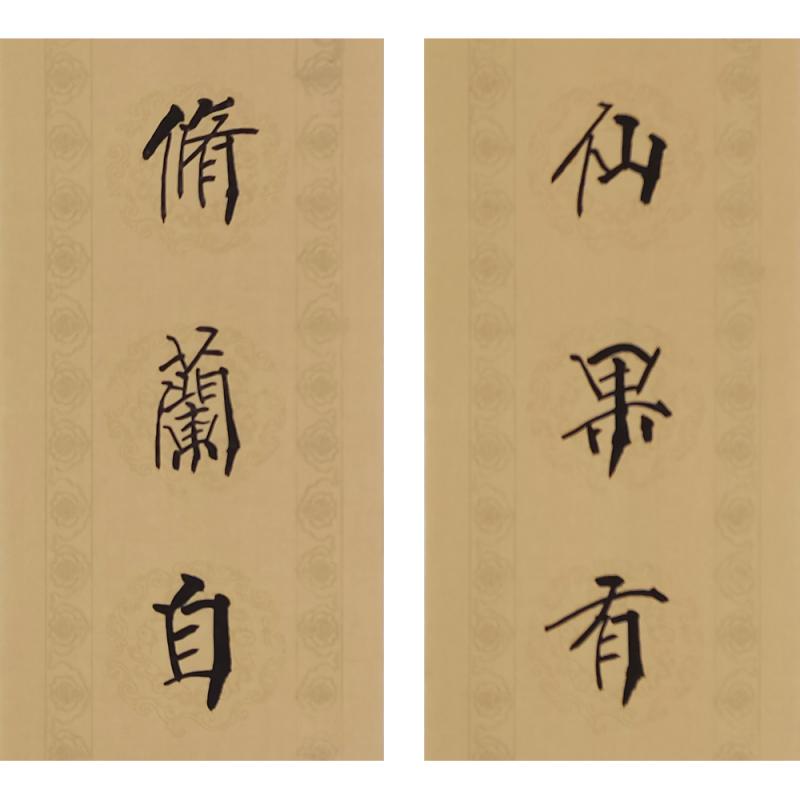 仙果有
脩蘭自